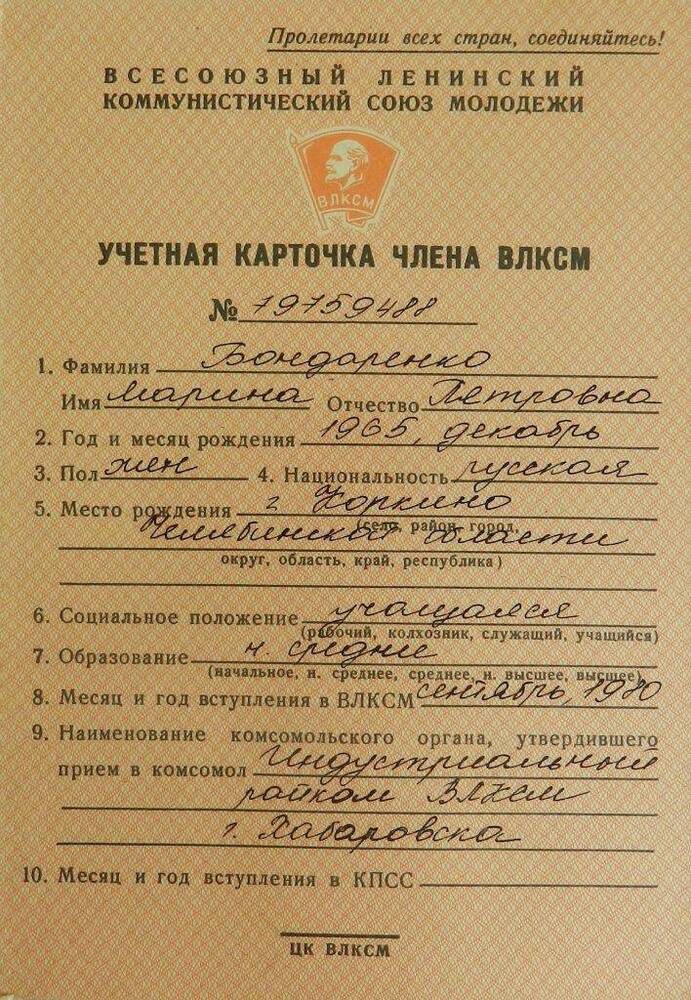 Пролетарии всех стран, соединяйтесь!
ВСЕСОЮЗНЫЙ ЛЕНИНСКИЙ
КОММУНИСТИЧЕСКИЙ СОЮЗ МОЛОДЕЖИ
ВЛКСМ
УЧЕТНАЯ КАРТОЧКА ЧЛЕНА ВЛКСМ
№ 79759488
1. Фамилия Бондаренко
Имя Марина Отчество Петровна
2. Год и месяц рождения 1965, декабрь
3. Пол жен 4. Национальность русская
5. Место рождения г. Коркино
(село, район, город,
Челябинской области
округ, область, край, республика)
6. Социальное положение учащаяся
(рабочий, колхозник, служащий, учащийся)
7. Образование н. среднее
(начальное, н. среднее, среднее, н. высшее, высшее)
8. Месяц и год вступления в ВЛКСМ сентябрь, 1980
9. Наименование комсомольского органа, утвердившего
прием в комсомол Индустриальный
райком ВЛКСМ
г. Хабаровска
10. Месяц и год вступления в КПСС
ЦК ВЛКСМ